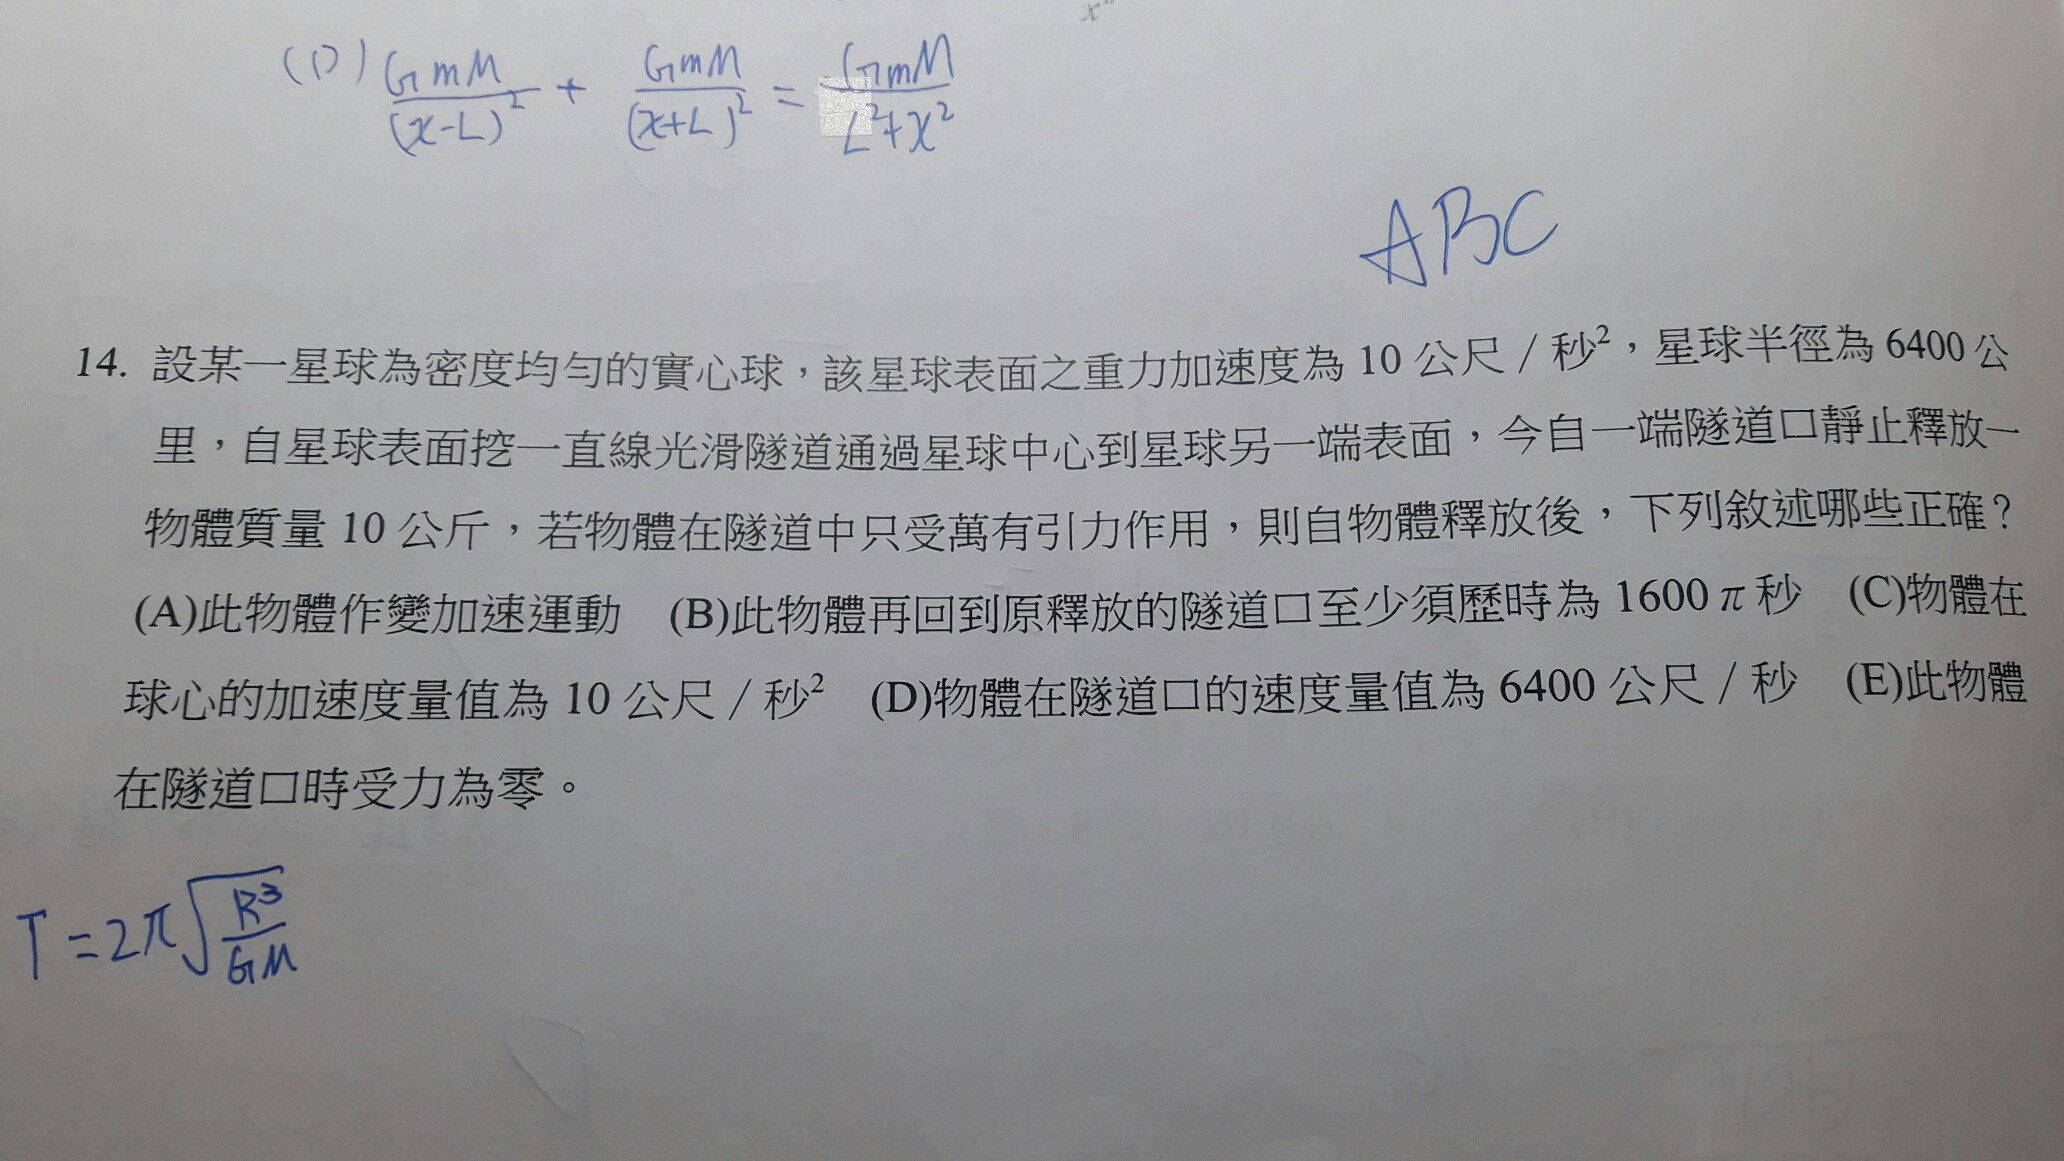 (D) GmM/(x-L)² + GmM/(x+L)² = GmM/L²+x²
ABC
14. 設某一星球為密度均勻的實心球，該星球表面之重力加速度為 10 公尺／秒²，星球半徑為 6400 公
里，自星球表面挖一直線光滑隧道通過星球中心到星球另一端表面，今自一端隧道口靜止釋放一
物體質量 10 公斤，若物體在隧道中只受萬有引力作用，則自物體釋放後，下列敘述哪些正確？
(A)此物體作變加速運動 (B)此物體再回到原釋放的隧道口至少須歷時為 1600π秒 (C)物體在
球心的加速度量值為 10 公尺／秒² (D)物體在隧道口的速度量值為 6400 公尺／秒 (E)此物體
在隧道口時受力為零。
T=2π√(R³/GM)